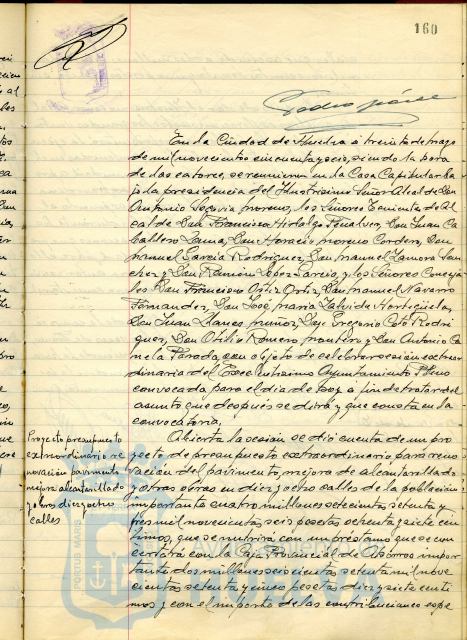 160
En la Ciudad de Huelva a treinta de mayo
de mil novecientos cincuenta y seis, siendo la hora
de las catorce, se reunieron en la Casa Capitular ba
jo la presidencia del Ilustrísimo Señor Alcalde Don
Antonio Segovia Moreno, los Señores Tenientes de Al
calde Don Francisco Hidalgo Peñalver, Don Juan Ca
ballero Lama, Don Horacio Moreno Cordero, Don
Manuel García Rodríguez, Don Manuel Zamora San
chez y Don Ramón López García, y los Señores Conceja
les Don Francisco Ortiz Ortiz, Don Manuel Navarro
Fernandez, Don José María Zalvide Hortigüela,
Don Juan Llanes Muñoz, Don Gregorio Coto Rodri
guez, Don Otilio Romero Montero y Don Antonio Ca
nela Parada, con objeto de celebrar sesión extraor
dinaria del Excelentísimo Ayuntamiento Pleno
convocada para el día de hoy a fin de tratar del
asunto que después se dirá y que consta en la
convocatoria.
Abierta la sesión se dió cuenta de un pro
yecto de presupuesto extraordinario para reno
vación del pavimento, mejora de alcantarillado
y otras obras en diez y ocho calles de la población
importante cuatro millones setecientas setenta y
tres mil novecientas seis pesetas ochenta y siete cén
timos, que se nutrirá con un préstamo que se con
certará con la Caja Provincial de Ahorros impor
tante dos millones seiscientas setenta mil nove
cientas setenta y cinco pesetas diez y siete cénti
mos y con el importe de las contribuciones espe
Proyecto presupuesto
extraordinario re
novación pavimento
mejora alcantarillado
y obras diez y ocho
calles
PORTUS MARIS